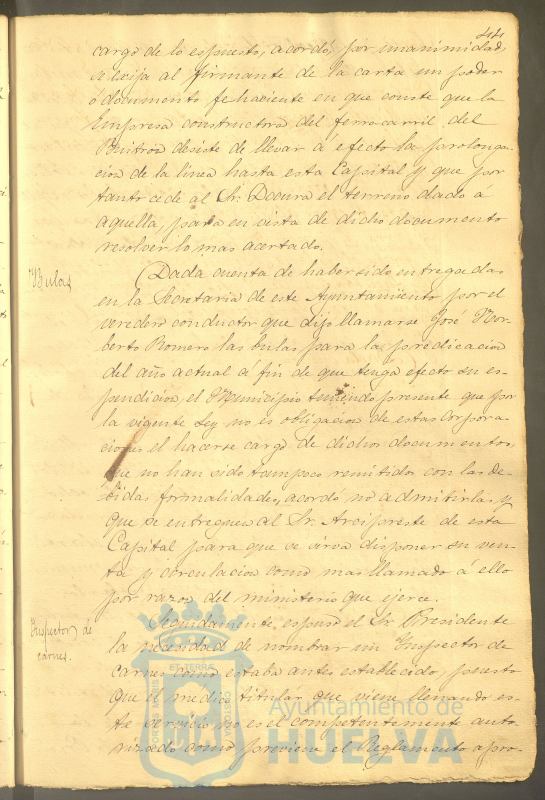 44
cargo de lo espuesto, acordó, por unanimidad,
se exija al firmante de la carta un poder
ó documento fehaciente en que conste que la
Empresa constructora del ferrocarril del
Buitron desiste de llevar á efecto la prolonga-
cion de la linea hasta esta Capital y que por
tanto cede al Sr. el terreno dado á
aquella, para en vista de dicho documento
resolver lo mas acertado.
Bulas
Dada cuenta de haber sido entregadas
en la Secretaria de este Ayuntamiento por el
veredero conductor que dijo llamarse José Nor-
berto Romero las bulas para la predicacion
del año actual a fin de que tenga efecto su es-
pendicion, el Municipio teniendo presente que por
la vigente Ley no es obligacion de estas Corpora-
ciones el hacerse cargo de dichos documentos,
que no han sido tampoco remitidos con las de-
bidas formalidades, acordó no admitirlas y
que se entreguen al Sr. Arcipreste de esta
Capital para que se sirva disponer su ven-
ta y circulacion como mas llamado á ello
por razon del ministerio que ejerce.
Inspector de
carnes.
Seguidamente espuso el Sr. Presidente
la necesidad de nombrar un Inspector de
carnes como estaba antes establecido, puesto
que el medico titular que viene llenando es-
te servicio no es el competentemente auto-
rizado como previene el Reglamento apro-
ET TERRÆ
PORTUS MARIS
CUSTODIA
Ayuntamiento de
HUELVA